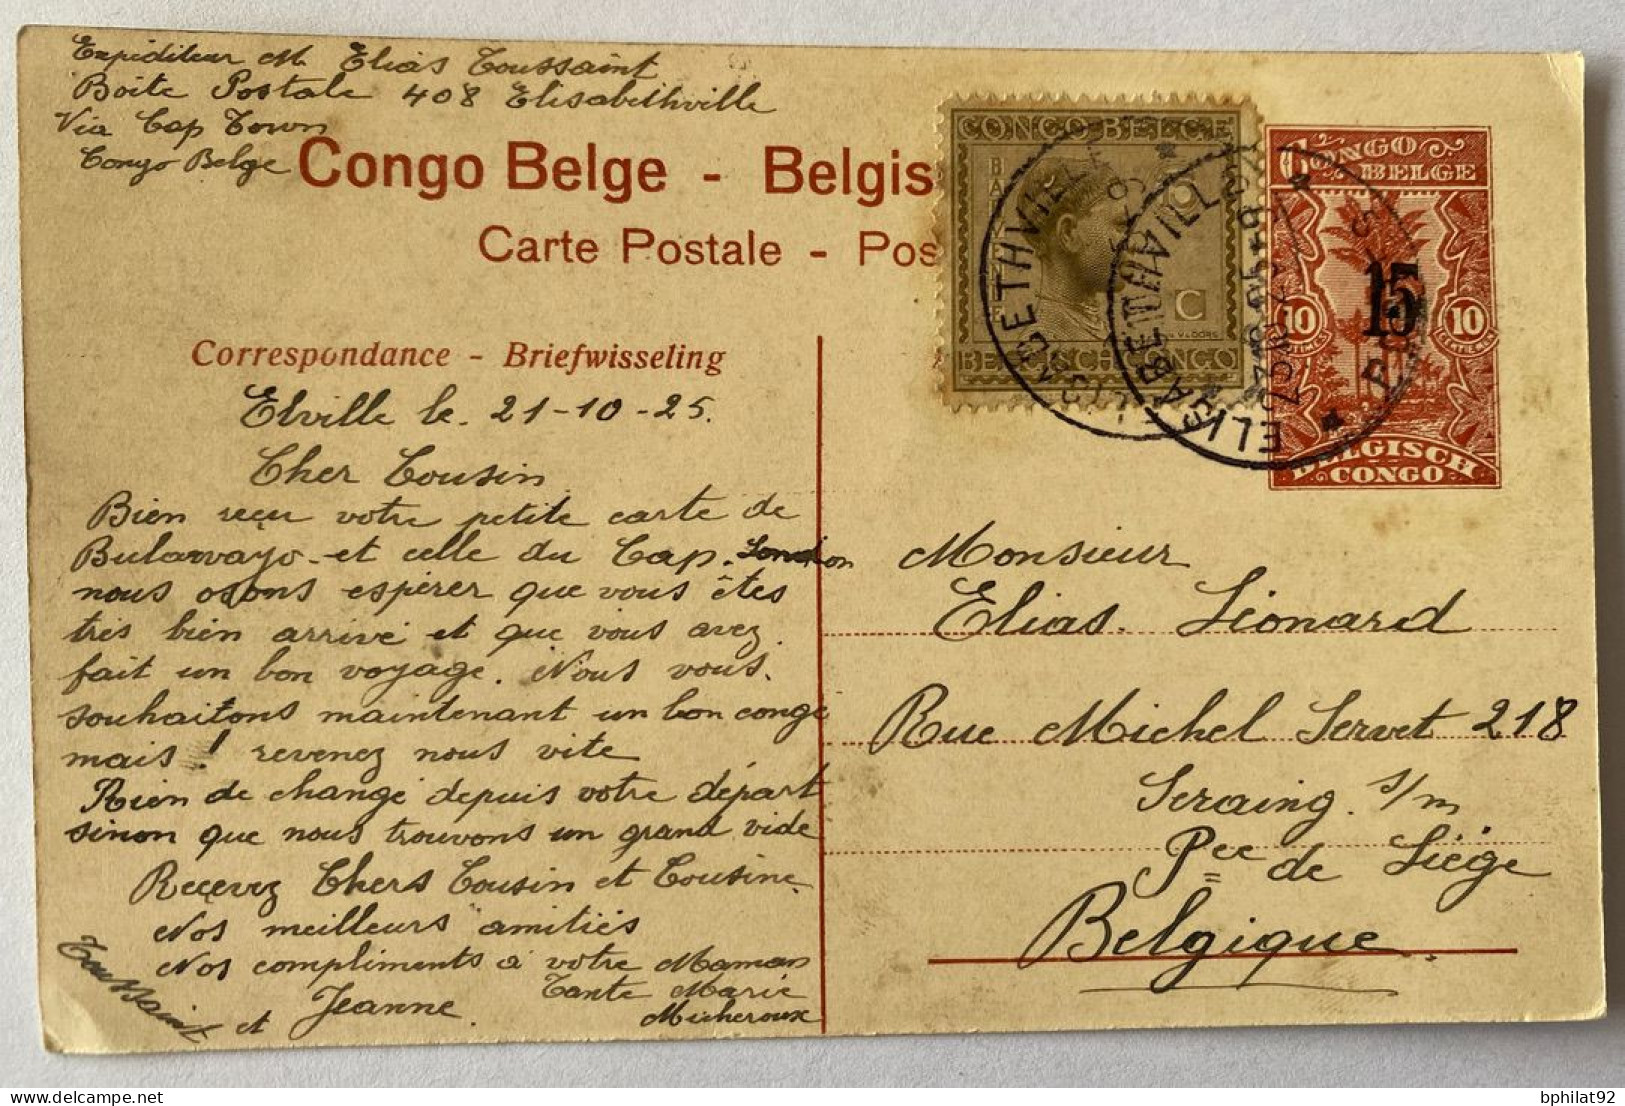 Expéditeur M. Elias Toussaint
Boite Postale 408 Elisabethville
Via Cap Town
Congo Belge
Congo Belge - Belgis
Carte Postale - Pos
CONGO BELGE
C
BELGISCH CONGO
CONGO
BELGE
15
10
10
BELGISCH
CONGO
Correspondance - Briefwisseling
Elville le. 21-10-25.
Cher Cousin
Bien reçu votre petite carte de
Bulawayo - et celle du Cap. London
nous osons espérer que vous êtes
très bien arrivé et que vous avez
fait un bon voyage. Nous vous.
souhaitons maintenant un bon congé
mais ! revenez nous vite
Rien de changé depuis votre départ
sinon que nous trouvons un grand vide
Recevez Chers Cousin et Cousine
Nos meilleurs amitiés
Nos compliments à votre Maman
Tante Marie
Micheroux
Toussaint et Jeanne.
Monsieur
Elias. Léonard
Rue Michel Servet 218
Seraing. s/m
Pce de Liége
Belgique.
bphilat92